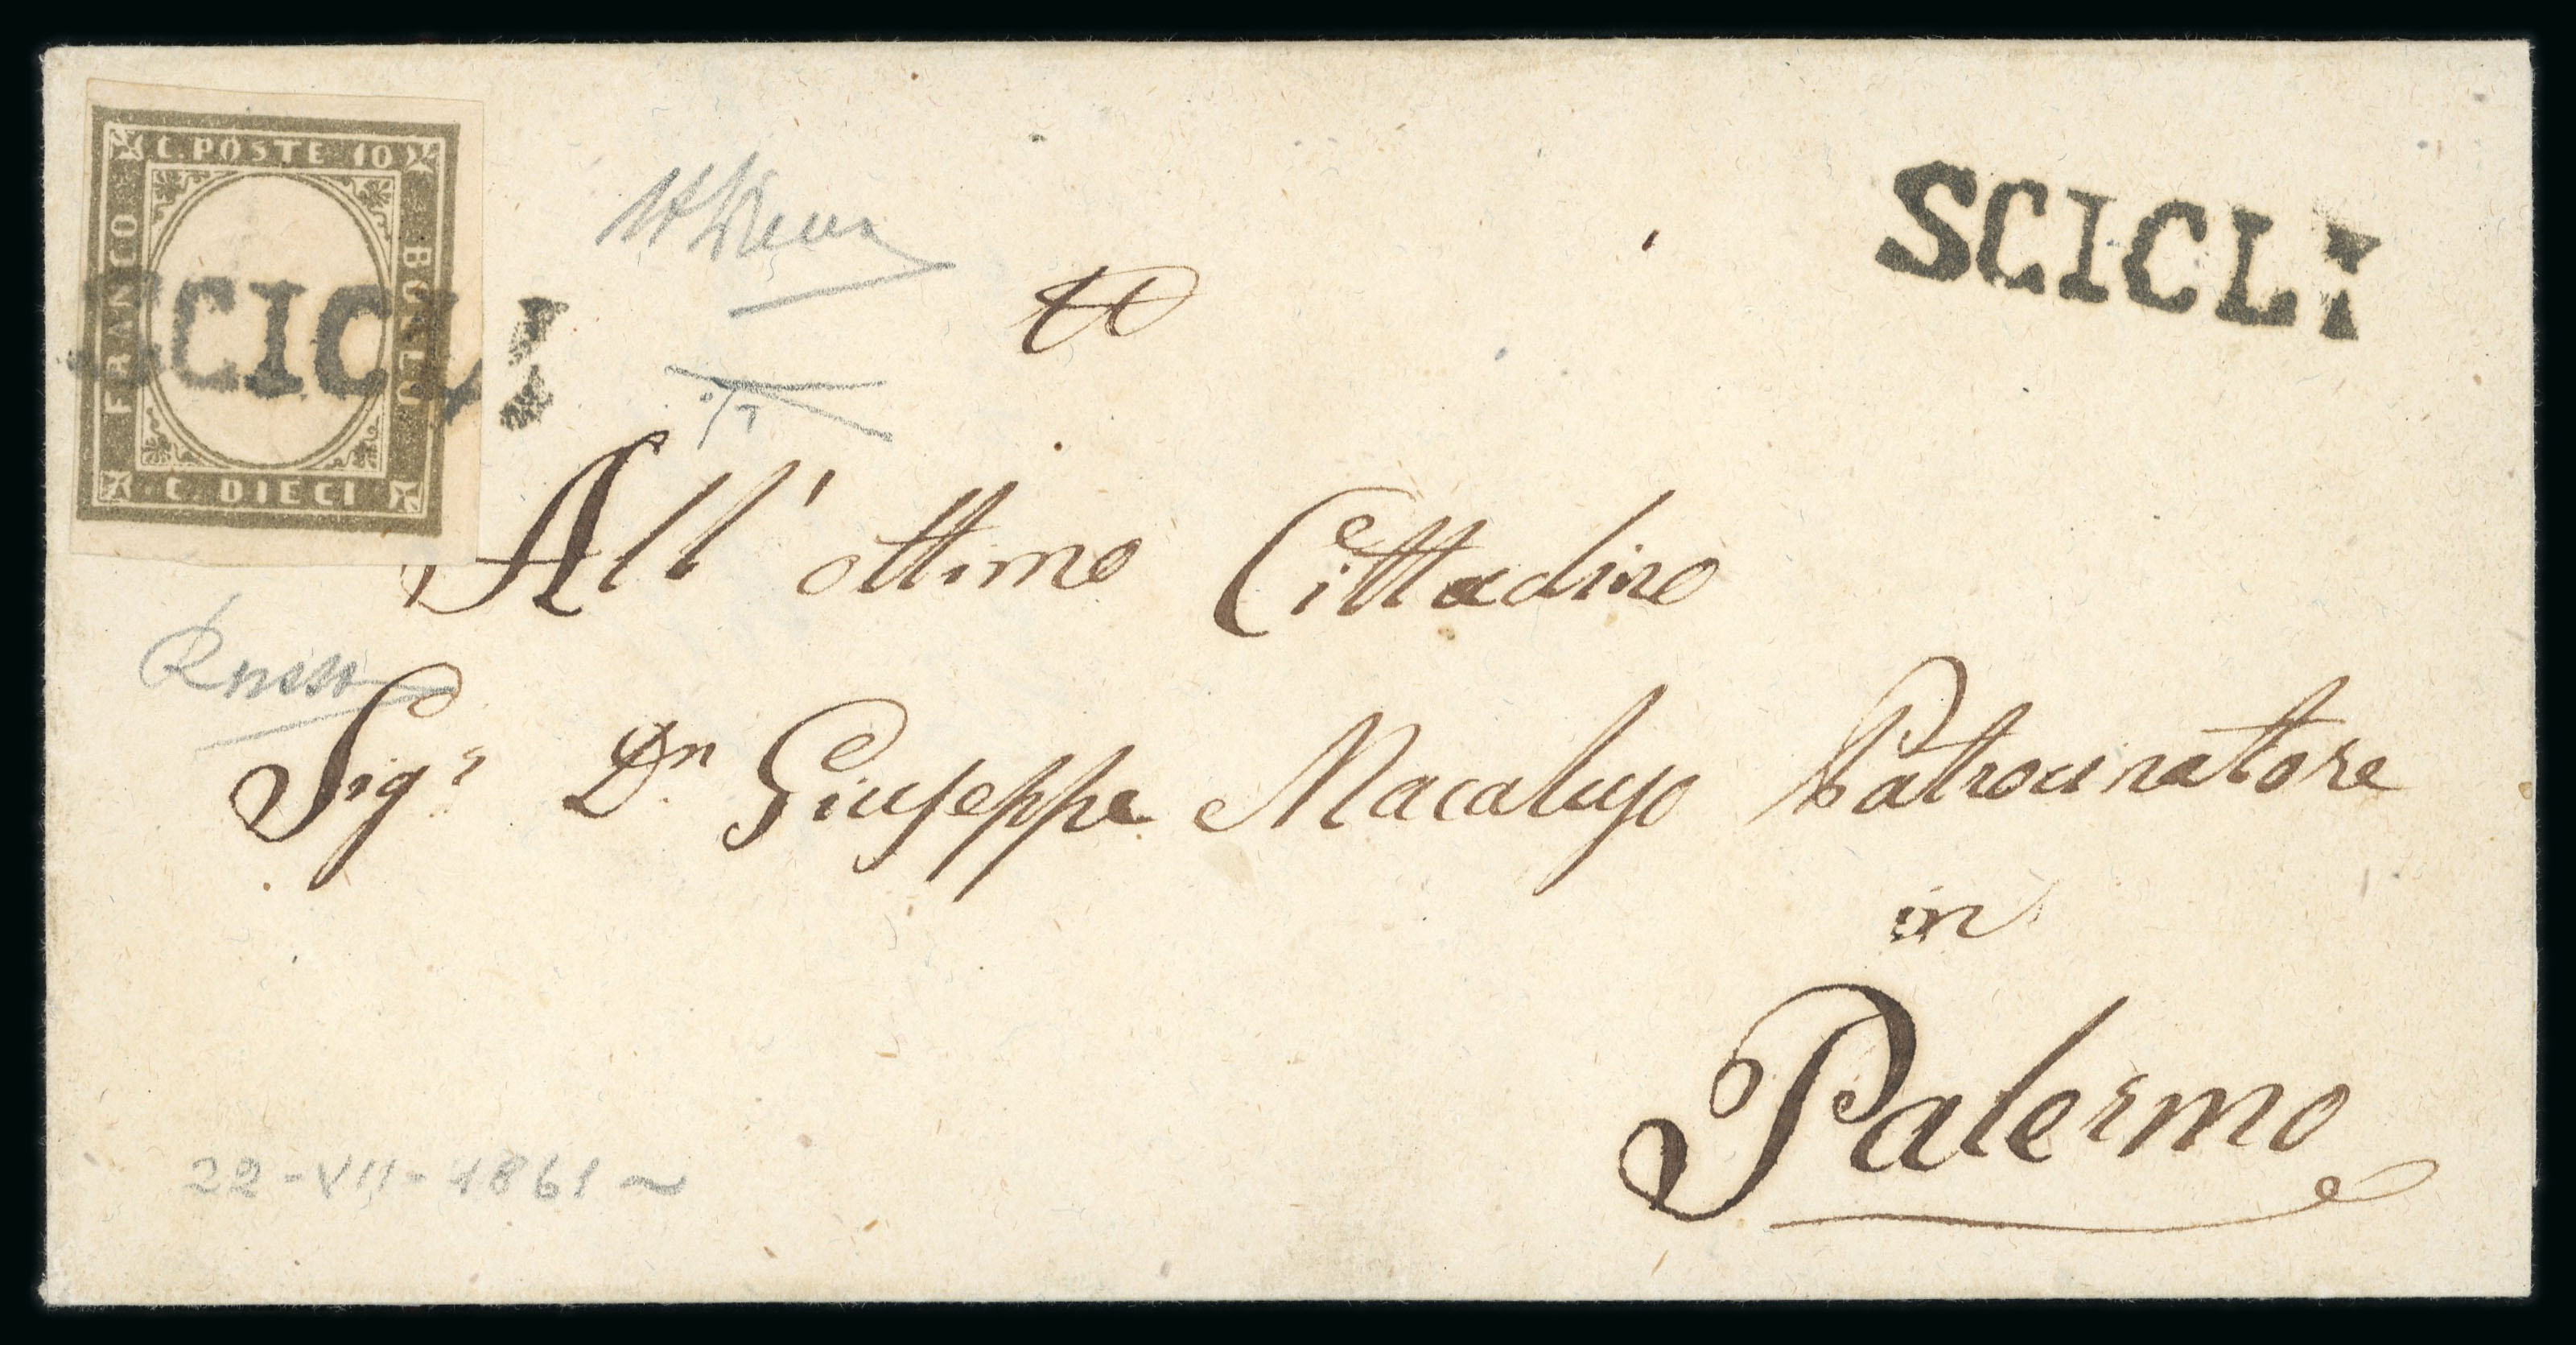 C. POSTE 10
FRANCO
BOLLO
C. DIECI
SCICLI
SCICLI
All' ottimo Cittadino
Sigr Dn Giuseppe Macaluso Patrocinatore
in
Palermo
22-VII-1861